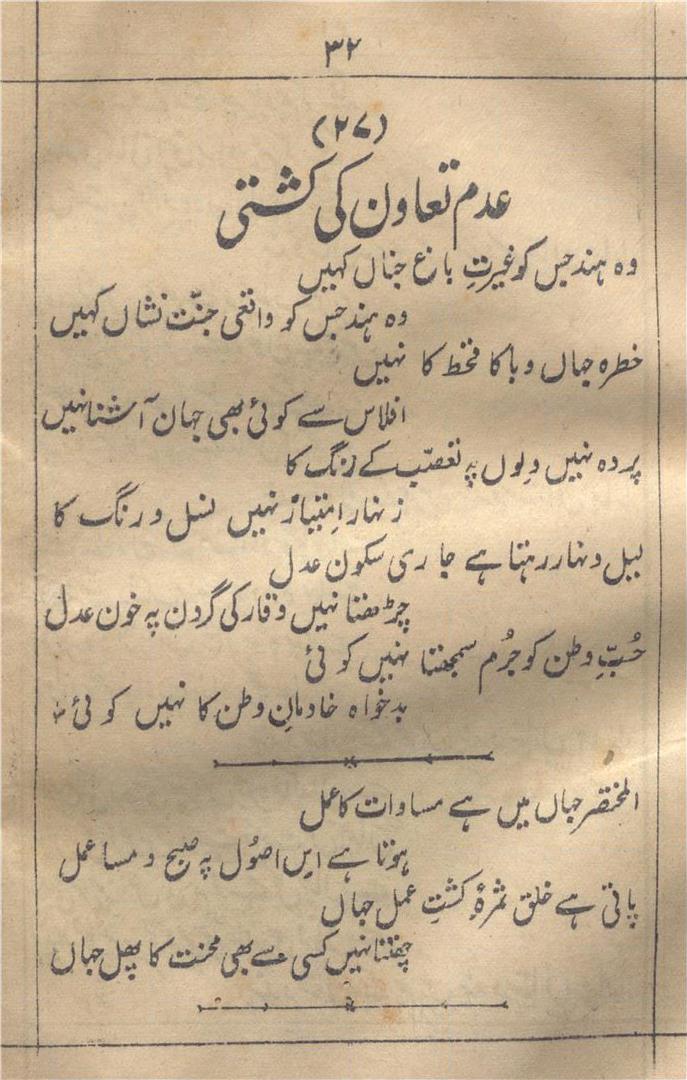 ۳۲
(۲۷)
عدم تعاون کی کشتی
وہ ہند جس کو غیرتِ باغ جناں کہیں
وہ ہند جس کو واقعی جنّت نشاں کہیں
خطرہ جہاں وبا کا قحط کا نہیں
افلاس سے کوئی بھی جہان آشنا نہیں
پردہ نہیں دِلوں پہ تعصّب کے زنگ کا
زنہار اِمتیاز نہیں نسل و رنگ کا
لیل و نہار رہتا ہے جاری سکون عدل
چڑھتا نہیں وقار کی گردن پہ خون عدل
حُبِّ وطن کو جُرم سمجھتا نہیں کوئی
بدخواہ خادمانِ وطن کا نہیں کوئی
المختصر جہاں میں ہے مساوات کا عمل
ہوتا ہے اِس اصُول پہ صبح و مسا عمل
پاتی ہے خلق ثمرۂ کشتِ عمل جہاں
چھنتا نہیں کسی سے بھی محنت کا پھل جہاں